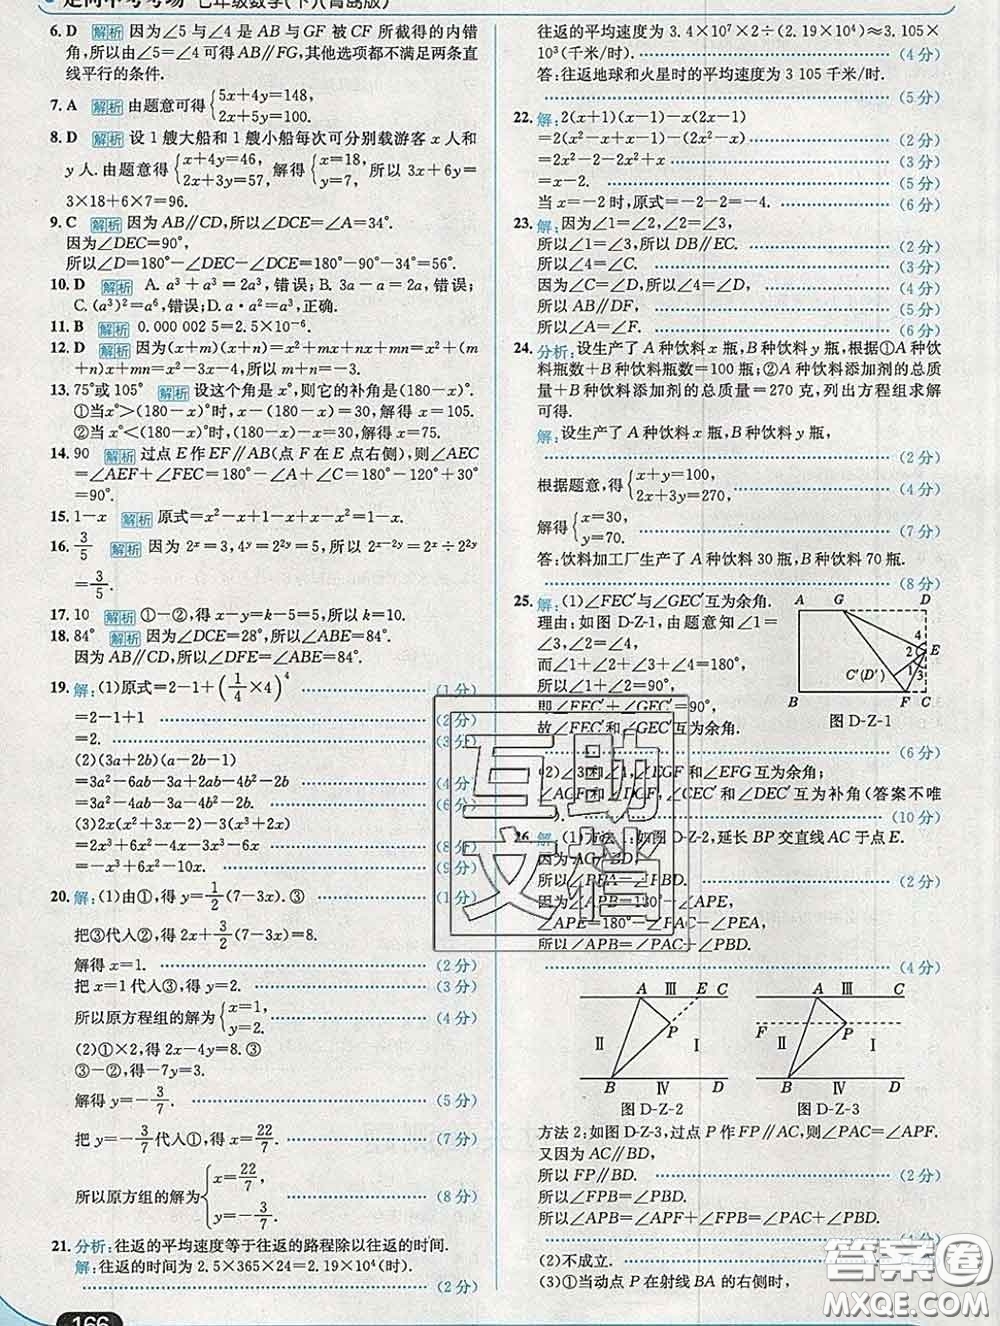 走向中考考场 七年级数学(下)(青岛版)
6. D 解析 因为∠5 与∠4 是 AB 与 GF 被 CF 所截得的内错
角,所以由∠5=∠4 可得 AB∥FG,其他选项都不满足两条直
线平行的条件.
7. A 解析 由题意可得{5x+4y=148, 2x+5y=100.
8. D 解析 设 1 艘大船和 1 艘小船每次可分别载游客 x 人和
y 人.由题意得{x+4y=46, 2x+3y=57, 解得{x=18, y=7, 所以 3x+6y=
3×18+6×7=96.
9. C 解析 因为 AB∥CD,所以∠DCE=∠A=34°.
因为∠DEC=90°,
所以∠D=180°-∠DEC-∠DCE=180°-90°-34°=56°.
10. D 解析 A. a³+a³=2a³,错误;B. 3a-a=2a,错误;
C. (a³)²=a⁶,错误;D. a·a²=a³,正确.
11. B 解析 0.000 002 5=2.5×10⁻⁶.
12. D 解析 因为(x+m)(x+n)=x²+mx+nx+mn=x²+(m
+n)x+mn=x²-3x-4,所以 m+n=-3.
13. 75°或 105° 解析 设这个角是 x°,则它的补角是(180-x)°.
①当x°>(180-x)°时,x-(180-x)=30,解得 x=105.
②当x°<(180-x)°时,180-x-x=30,解得 x=75.
14. 90 解析 过点 E 作 EF∥AB(点 F 在 E 点右侧),则∠AEC
=∠AEF+∠FEC=180°-∠A+∠C=180°-120°+30°
=90°.
15. 1-x 解析 原式=x²-x+1-x+x-x²=1-x.
16. 3/5 解析 因为 2ˣ=3,4ʸ=2²ʸ=5,所以 2ˣ⁻²ʸ=2ˣ÷2²ʸ
=3/5.
17. 10 解析 ①-②,得 x-y=k-5=5,所以 k=10.
18. 84° 解析 因为∠DCE=28°,所以∠ABE=84°.
因为 AB∥CD,所以∠DFE=∠ABE=84°.
19. 解:(1)原式=2-1+(1/4×4)⁴ (1 分)
=2-1+1 (2 分)
=2. (3 分)
(2)(3a+2b)(a-2b-1)
=3a²-6ab-3a+2ab-4b²-2b (4 分)
=3a²-4ab-3a-4b²-2b. (6 分)
(3)2x(x²+3x-2)-3(x²+2x)
=2x³+6x²-4x-3x²-6x (8 分)
(9 分)
20. 解:(1)由①,得 y=1/2(7-3x).③ (1 分)
把③代入②,得 2x+3/2(7-3x)=8.
解得 x=1. (2 分)
把 x=1 代入③,得 y=2. (3 分)
所以原方程组的解为{x=1, y=2. (4 分)
(2)①×2,得 2x-4y=8.③
③-②,得-7y=3.
解得 y=-3/7. (5 分)
把 y=-3/7代入①,得 x=22/7. (7 分)
所以原方程组的解为{x=22/7, y=-3/7. (8 分)
21. 分析:往返的平均速度等于往返的路程除以往返的时间.
解:往返的时间为 2.5×365×24=2.19×10⁴(时).
(2 分)
166
往返的平均速度为 3.4×10⁷×2÷(2.19×10⁴)≈3.105×
10³(千米/时). (4 分)
答:往返地球和火星时的平均速度为 3 105 千米/时.
(5 分)
22. 解:2(x+1)(x-1)-x(2x-1)
=2(x²-x+x-1)-(2x²-x) (2 分)
=2x²-2-2x²+x (3 分)
=x-2. (5 分)
当 x=-2 时,原式=-2-2=-4. (6 分)
23. 解:因为∠1=∠2,∠2=∠3,
所以∠1=∠3,所以 DB∥EC. (2 分)
所以∠4=∠C. (3 分)
因为∠C=∠D,所以∠4=∠D, (4 分)
所以 AB∥DF, (5 分)
所以∠A=∠F. (6 分)
24. 分析:设生产了 A 种饮料 x 瓶,B 种饮料 y 瓶,根据①A 种饮
料瓶数+B 种饮料瓶数=100 瓶;②A 种饮料添加剂的总质
量+B 种饮料添加剂的总质量=270 克,列出方程组求解
可得.
解:设生产了 A 种饮料 x 瓶,B 种饮料 y 瓶,
(2 分)
根据题意,得{x+y=100, 2x+3y=270, (4 分)
解得{x=30, y=70. (7 分)
答:饮料加工厂生产了 A 种饮料 30 瓶,B 种饮料 70 瓶.
(8 分)
25. 解:(1)∠FEC′与∠GEC′互为余角.
理由:如图 D-Z-1,由题意知∠1=
∠3,∠2=∠4.
而∠1+∠2+∠3+∠4=180°,
所以∠1+∠2=90°,
即∠FEC′+∠GEC′=90°,
故∠FEC′和∠GEC′互为余角.
(6 分)
A G D 4 2 E 1 3 C′(D′) B F C
图 D-Z-1
(2)∠3 和∠1,∠EGF 和∠EFG 互为余角;
∠AGF 和∠DGF,∠CEC′和∠DEC′互为补角(答案不唯
一). (10 分)
26. 解:(1)方法 1:如图 D-Z-2,延长 BP 交直线 AC 于点 E.
因为 AC∥BD,
所以∠PEA=∠PBD. (2 分)
因为∠APB=180°-∠APE,
∠APE=180°-∠PAC-∠PEA,
所以∠APB=∠PAC+∠PBD.
(4 分)
A Ⅲ E C Ⅱ P Ⅰ B Ⅳ D
图 D-Z-2
A Ⅲ C F P Ⅱ Ⅰ B Ⅳ D
图 D-Z-3
方法 2:如图 D-Z-3,过点 P 作 FP∥AC,则∠PAC=∠APF.
又因为 AC∥BD,
所以 FP∥BD. (2 分)
所以∠FPB=∠PBD.
所以∠APB=∠APF+∠FPB=∠PAC+∠PBD.
(4 分)
(2)不成立.
(3)①当动点 P 在射线 BA 的右侧时,
互助
文档
答案圈
MXQE.COM